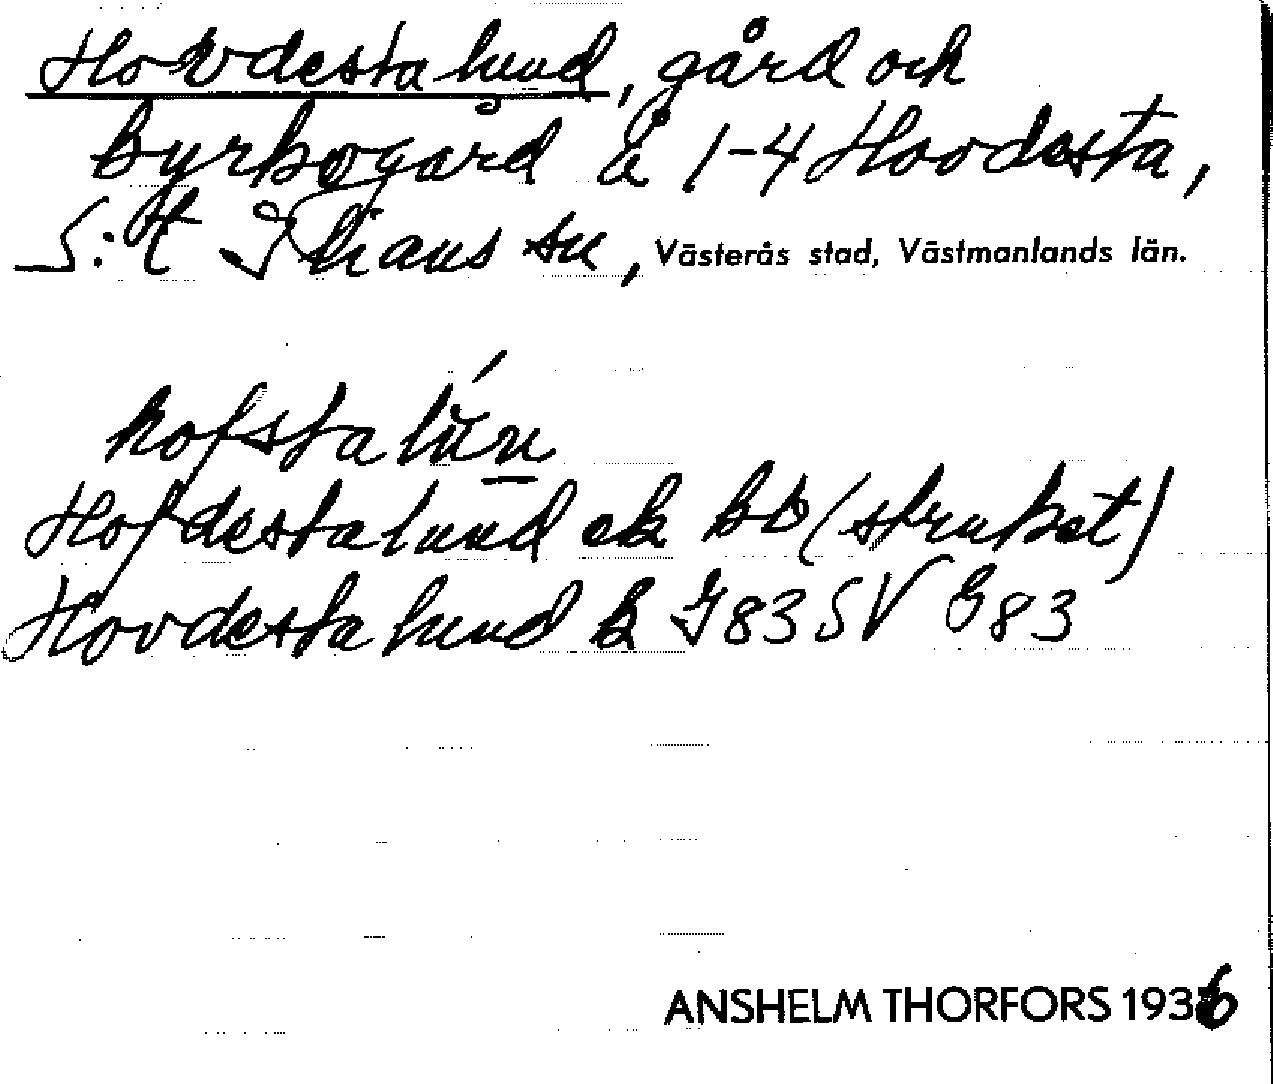 Hovdestalund, gård och
byrkogård å 1-4 Hovdesta,
S:t Ilians sn, Västerås stad, Västmanlands län.
hofstalún
Hofdestalund ek bb (struket)
Hovdestalund k J83SV G83
ANSHELM THORFORS 1936